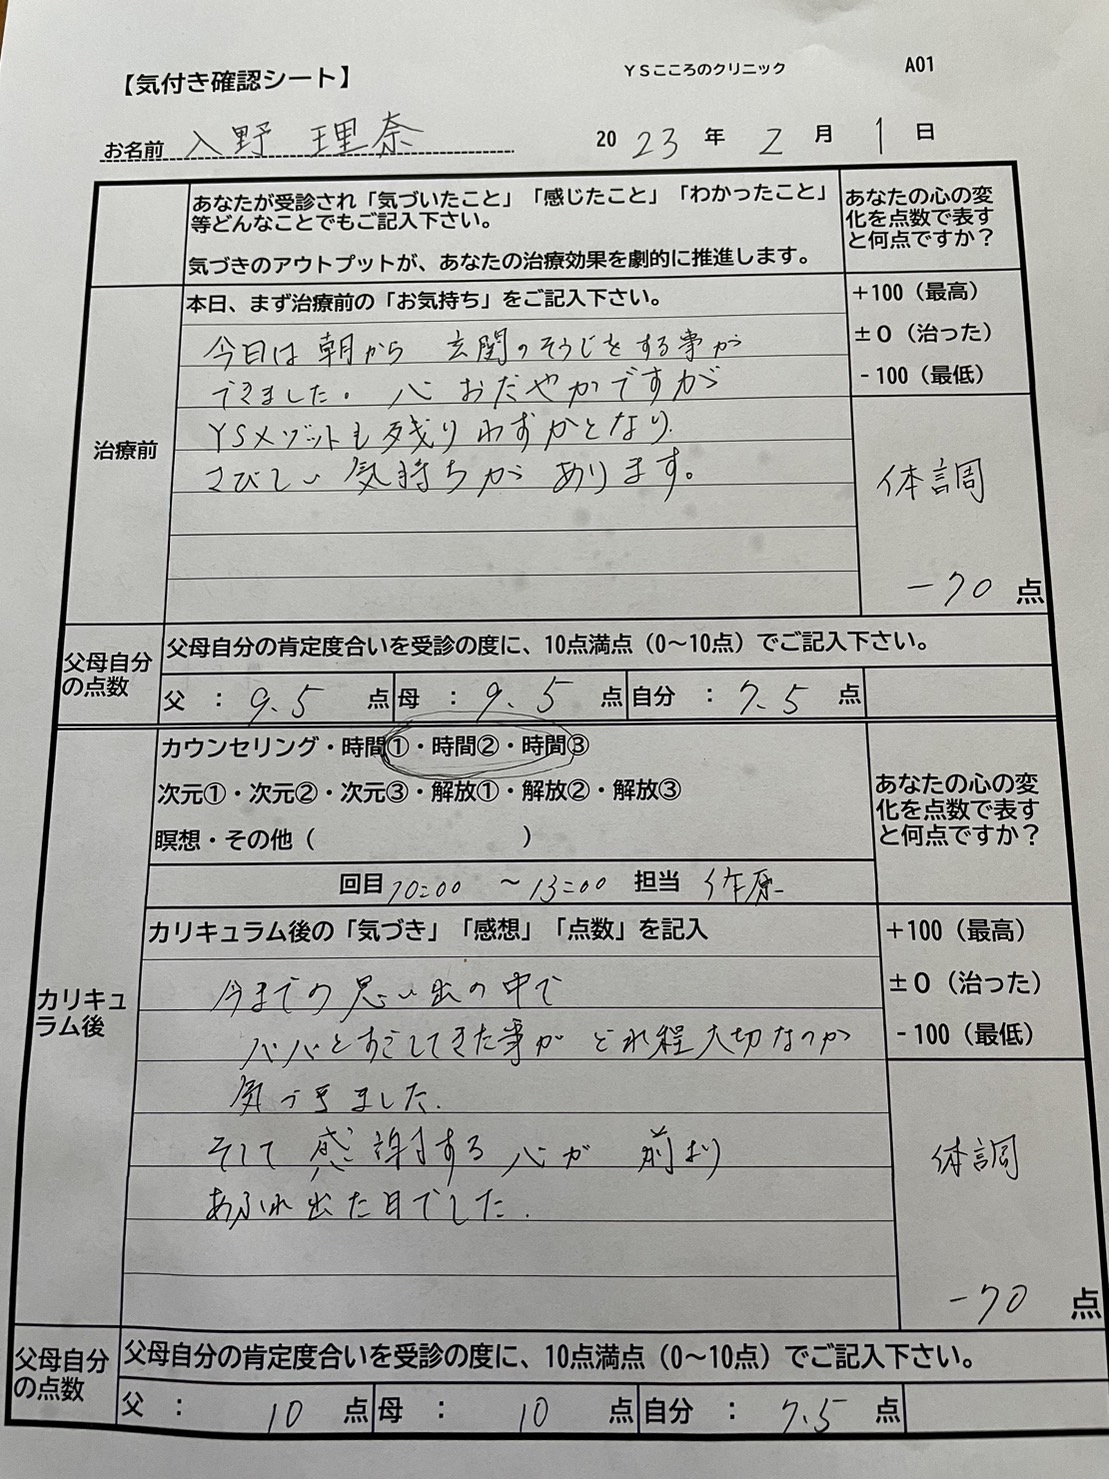 【気付き確認シート】 YSこころのクリニック A01
お名前 入野 理奈 2023年 2月 1日
あなたが受診され「気づいたこと」「感じたこと」「わかったこと」
等どんなことでもご記入下さい。
気づきのアウトプットが、あなたの治療効果を劇的に推進します。
あなたの心の変
化を点数で表す
と何点ですか?
治療前
本日、まず治療前の「お気持ち」をご記入下さい。
今日は朝から 玄関のそうじをする事が
できました。心 おだやかですが
YSメゾットも残りわずかとなり
さびしい気持ちがあります。
+100(最高)
±0(治った)
-100(最低)
体調
-70点
父母自分
の点数
父母自分の肯定度合いを受診の度に、10点満点(0〜10点)でご記入下さい。
父 : 9.5 点 母 : 9.5 点 自分 : 7.5 点
カリキュ
ラム後
カウンセリング・時間①・時間②・時間③
次元①・次元②・次元③・解放①・解放②・解放③
瞑想・その他( )
回目 10:00 〜13:00 担当 作原
あなたの心の変
化を点数で表す
と何点ですか?
カリキュラム後の「気づき」「感想」「点数」を記入
今までの思い出の中で
パパとすごしてきた事がどれ程大切なのか
気づきました.
そして感謝する心が 前より
あふれ出た日でした.
+100(最高)
±0(治った)
-100(最低)
体調
-70点
父母自分
の点数
父母自分の肯定度合いを受診の度に、10点満点(0〜10点)でご記入下さい。
父 : 10 点 母 : 10 点 自分 : 7.5 点